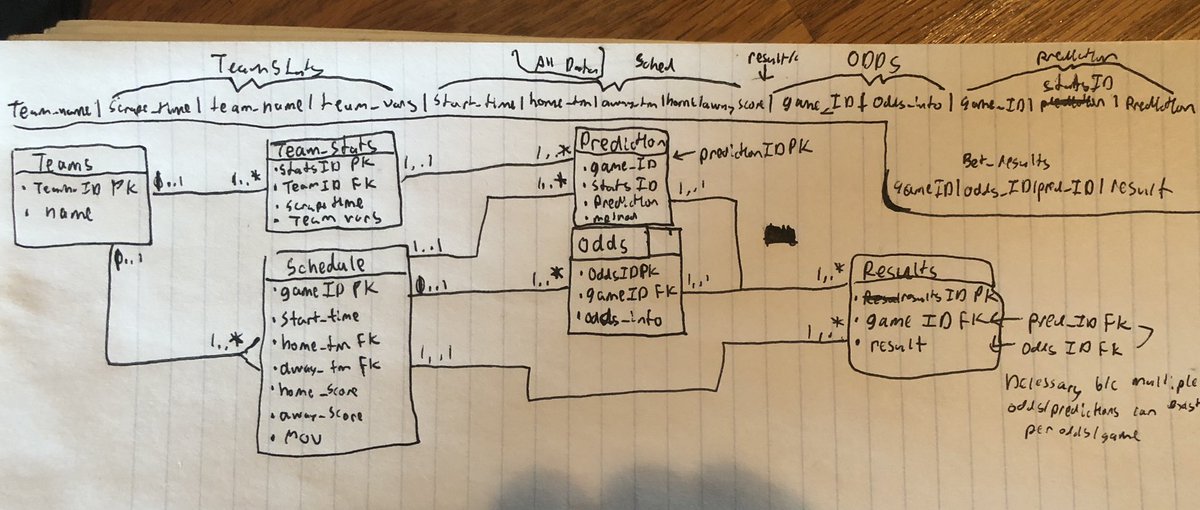 TeamStats
All Data
Sched
result/c
ODDS
prediction
statsID
Team_name | scrape_time | team_name | team_vars | start_time | home_tm | away_tm | home/away score | game_ID | odds_info | game_ID | prediction | Prediction
Bet_results
gameID | odds_ID | pred_ID | result
Teams
• Team ID PK
• name
0..1
1..*
Team_stats
• statsID PK
• TeamID FK
• scrapetime
• Team vars
1..1
1..*
Prediction
• game_ID
• stats ID
• Prediction
• method
← predictionID PK
1..*
1..1
0..1
1..*
Schedule
• gameID PK
• start_time
• home_tm FK
• away_tm FK
• home_score
• away_score
• MOV
1..1
0..1
1..*
Odds
• OddsID PK
• gameID FK
• odds_info
1..1
1..1
1..*
1..*
Results
• results ID PK
• game ID FK
• result
← pred_ID FK
← odds ID FK
Necessary b/c multiple
odds/predictions can exist
per odds/game